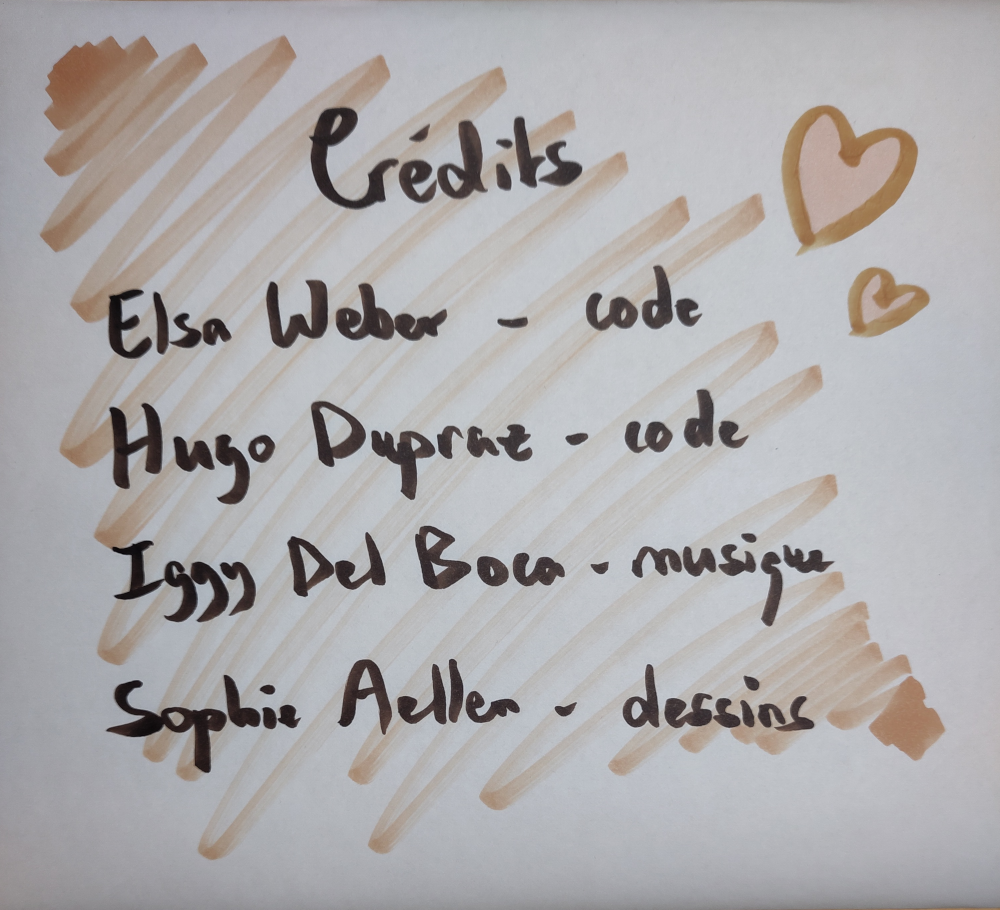 Crédits
Elsa Weber - code
Hugo Dupraz - code
Iggy Del Boca - musique
Sophie Aellen - dessins